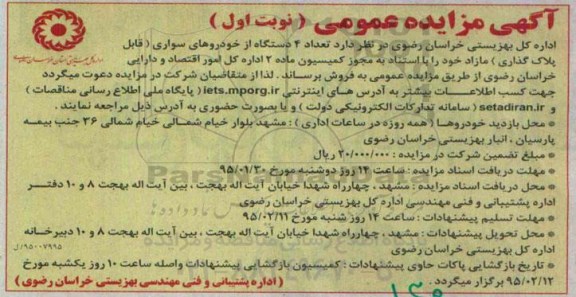 آگهی مزایده عمومی ( نوبت اول )
اداره کل بهزیستی خراسان رضوی در نظر دارد تعداد ۴ دستگاه از خودروهای سواری ( قابل
پلاک گذاری ) مازاد خود را با استناد به مجوز کمیسیون ماده ۲ اداره کل امور اقتصاد و دارایی
خراسان رضوی از طریق مزایده عمومی به فروش برساند. لذا از متقاضیان شرکت در مزایده دعوت میگردد
جهت کسب اطلاعات بیشتر به آدرس های اینترنتی iets.mporg.ir ( پایگاه ملی اطلاع رسانی مناقصات )
و setadiran.ir ( سامانه تدارکات الکترونیکی دولت ) و یا بصورت حضوری به آدرس ذیل مراجعه نمایند .
* محل بازدید خودروها ( همه روزه در ساعات اداری ) : مشهد بلوار خیام شمالی خیام شمالی ۳۶ جنب بیمه
پارسیان ، انبار بهزیستی خراسان رضوی
* مبلغ تضمین شرکت در مزایده : ۲۰/۰۰۰/۰۰۰ ریال
* مهلت دریافت اسناد مزایده : ساعت ۱۴ روز دوشنبه مورخ ۹۵/۰۱/۳۰
* محل دریافت اسناد مزایده : مشهد ، چهارراه شهدا خیابان آیت اله بهجت ، بین آیت اله بهجت ۸ و ۱۰ دفتر
اداره پشتیبانی و فنی مهندسی اداره کل بهزیستی خراسان رضوی
* مهلت تسلیم پیشنهادات : ساعت ۱۴ روز شنبه مورخ ۹۵/۰۲/۱۱
* محل تحویل پیشنهادات : مشهد ، چهارراه شهدا خیابان آیت اله بهجت ، بین آیت اله بهجت ۸ و ۱۰ دبیرخانه
اداره کل بهزیستی خراسان رضوی
۱۹۵۰۰۷۹۹۵/ل
* تاریخ بازگشایی پاکات حاوی پیشنهادات : کمیسیون بازگشایی پیشنهادات واصله ساعت ۱۰ روز یکشنبه مورخ
۹۵/۰۲/۱۲ برگزار میگردد.
(اداره پشتیبانی و فنی مهندسی بهزیستی خراسان رضوی)